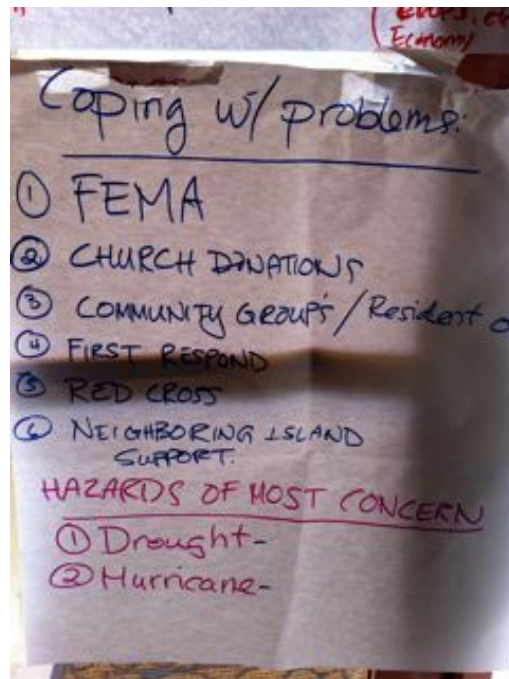 Economy
Coping w/ problems:
① FEMA
② CHURCH DONATIONS
③ COMMUNITY GROUPS / Resident
④ FIRST RESPOND
⑤ RED CROSS
⑥ NEIGHBORING ISLAND
SUPPORT.
HAZARDS OF MOST CONCERN
① Drought-
② Hurricane-